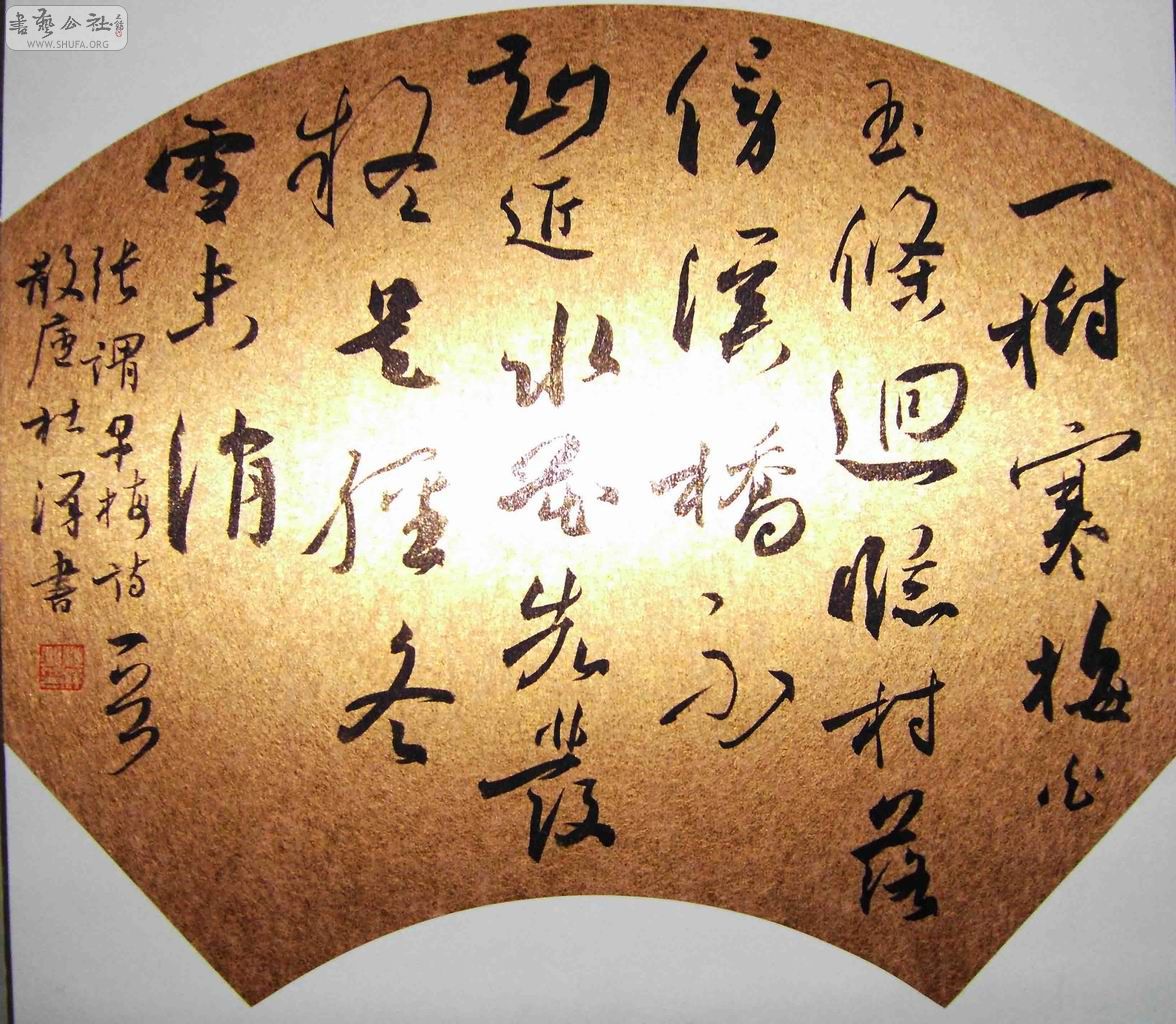 書藝公社
WWW.SHUFA.ORG
一樹寒梅白
玉條迴臨村落
傍溪橋不
知近水花先發
疑是經冬
雪未消
張謂早梅詩一首
散杜澤書